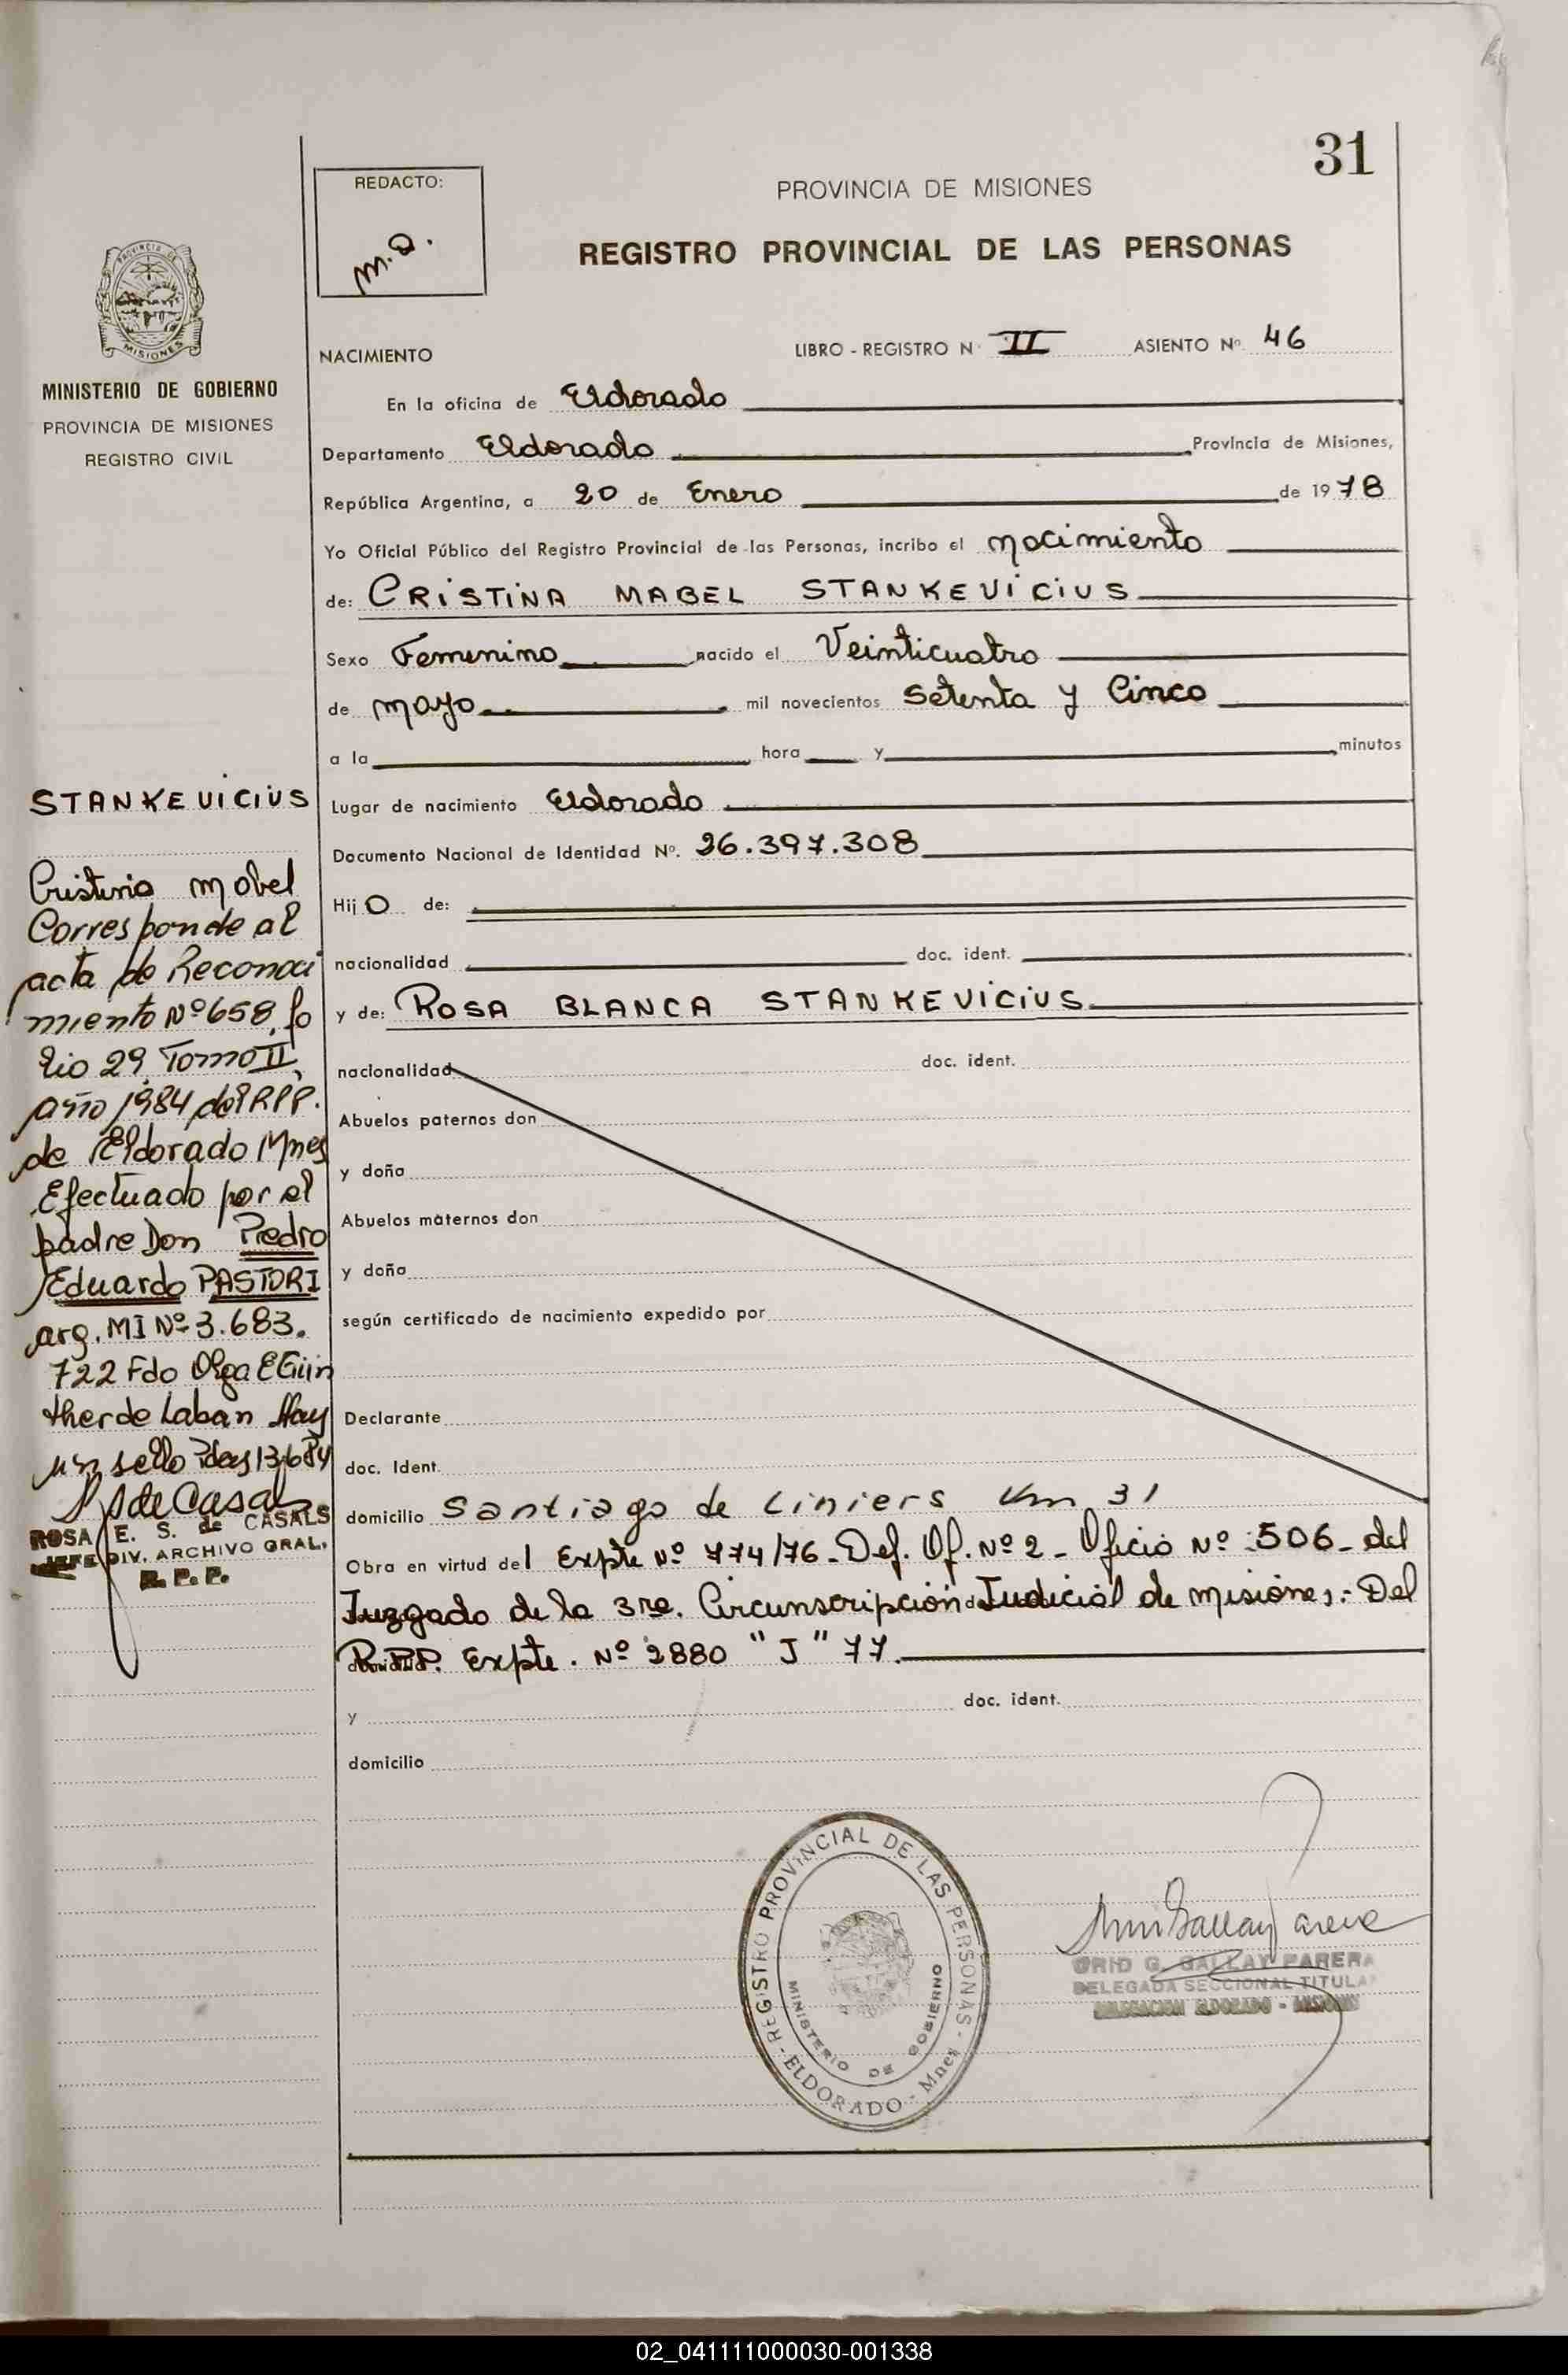 31
REDACTO:
m.a.
PROVINCIA DE MISIONES
REGISTRO PROVINCIAL DE LAS PERSONAS
PROVINCIA DE
MISIONES
MINISTERIO DE GOBIERNO
PROVINCIA DE MISIONES
REGISTRO CIVIL
NACIMIENTO
LIBRO - REGISTRO N° II ASIENTO N° 46
En la oficina de Eldorado
Departamento Eldorado Provincia de Misiones,
República Argentina, a 20 de Enero de 1978
Yo Oficial Público del Registro Provincial de las Personas, incribo el nacimiento
de: CRISTINA MABEL STANKEVICIUS
Sexo Femenino nacido el Veinticuatro
de mayo mil novecientos Setenta y Cinco
a la hora y minutos
Lugar de nacimiento Eldorado
Documento Nacional de Identidad N°. 26.397.308
Hijo de:
nacionalidad doc. ident.
y de: ROSA BLANCA STANKEVICIUS
nacionalidad doc. ident.
Abuelos paternos don
y doña
Abuelos maternos don
y doña
según certificado de nacimiento expedido por
Declarante
doc. Ident.
domicilio Santiago de Liniers Km 31
Obra en virtud del Expte Nº 774/76 - Def. Of. Nº 2 - Oficio Nº 506 - del
Juzgado de la 3ra. Circunscripción Judicial de misiones.- Del
R.P.P. Expte. Nº 2880 "J" 77.
y doc. ident.
domicilio
STANKEVICIUS
Cristina mabel
Corresponde al
acta de Reconoci
miento Nº 658, fo
lio 29, Tomo II,
año 1984 del RPP.
de Eldorado Mnes
Efectuado por el
padre Don Pedro
Eduardo PASTORI
arg. MI Nº 3.683.
722 Fdo Olga E Gün
ther de Laban Hay
un sello Pdas 13/6/84
ROSA E. S. de CASALS
JEFE DIV. ARCHIVO GRAL.
R. P. P.
REGISTRO PROVINCIAL DE LAS PERSONAS - ELDORADO - Mnes
MINISTERIO DE GOBIERNO
GRID G. GALLAY PARERA
DELEGADA SECCIONAL TITULAR
DELEGACION ELDORADO - MISIONES
02_041111000030-001338